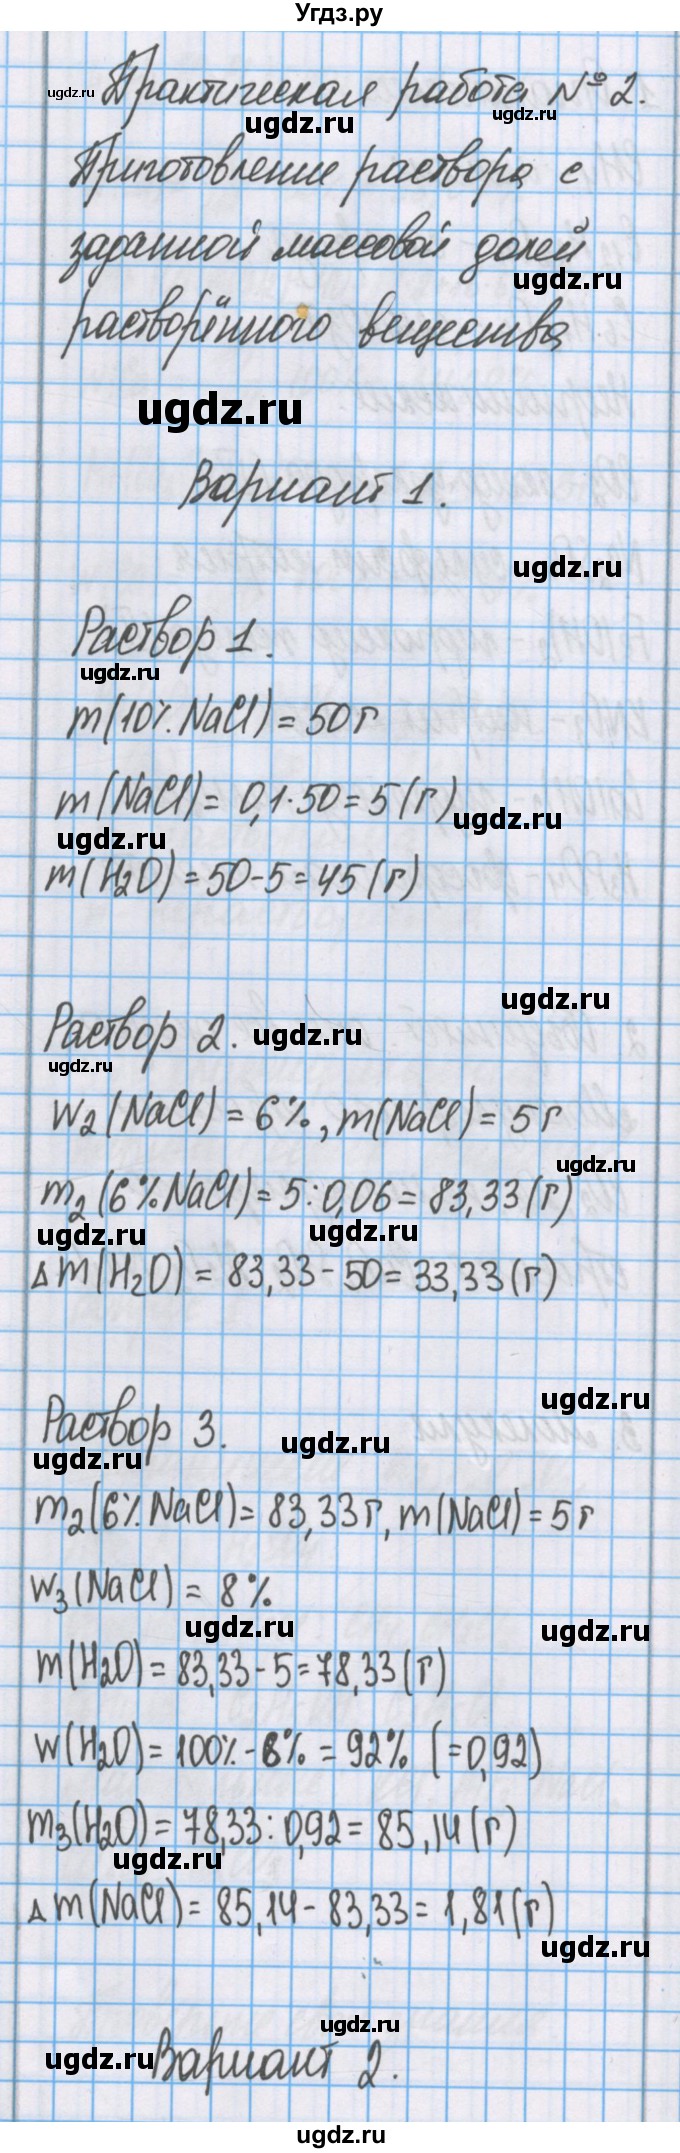 Угдз.ру
ugdz.ru Практическая работа № 2.
ugdz.ru ugdz.ru
Приготовление раствора с
заданной массовой долей
ugdz.ru
растворённого вещества
ugdz.ru
Вариант 1.
ugdz.ru
Раствор 1.
ugdz.ru
m(10% NaCl) = 50 г
m(NaCl) = 0,1·50 = 5 (г)
ugdz.ru ugdz.ru
m(H2O) = 50-5 = 45 (г)
ugdz.ru
Раствор 2. ugdz.ru
ugdz.ru
w2(NaCl) = 6%, m(NaCl) = 5 г
ugdz.ru
m2(6% NaCl) = 5:0,06 = 83,33 (г)
ugdz.ru ugdz.ru
Δm(H2O) = 83,33 - 50 = 33,33 (г)
ugdz.ru
Раствор 3. ugdz.ru
ugdz.ru
m2(6% NaCl) = 83,33 г, m(NaCl) = 5 г
w3(NaCl) = 8%
ugdz.ru ugdz.ru
m(H2O) = 83,33 - 5 = 78,33 (г)
w(H2O) = 100% - 8% = 92% (=0,92)
m3(H2O) = 78,33 : 0,92 = 85,14 (г)
ugdz.ru
Δm(NaCl) = 85,14 - 83,33 = 1,81 (г)
ugdz.ru
ugdz.ru
ugdz.ru Вариант 2.
ugdz.ru